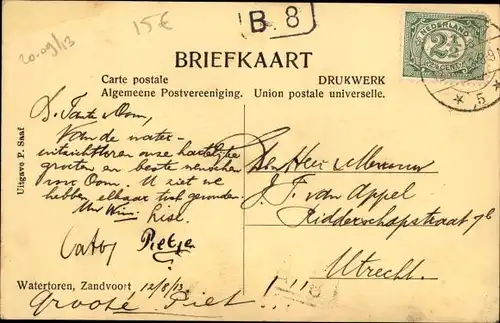 20.09/13
15€
B. 8
NEDERLAND
2½
CENT
5
BRIEFKAART
Carte postale
DRUKWERK
Algemeene Postvereeniging.
Union postale universelle.
Uitgave P. Saaf
L. Tante Oom,
Van de water-
uitzichttoren onze hartelijke
groeten en beste wenschen
voor Oom. U ziet we
hebben elkaar toch gevonden.
Uw Wim. Liesl.
Cato, Pietje
Den Heer en Mevrouw
J. F. van Appel
Ridderschapstraat 7b
Utrecht.
Watertoren, Zandvoort 12/8/13
Groote Piet!!!